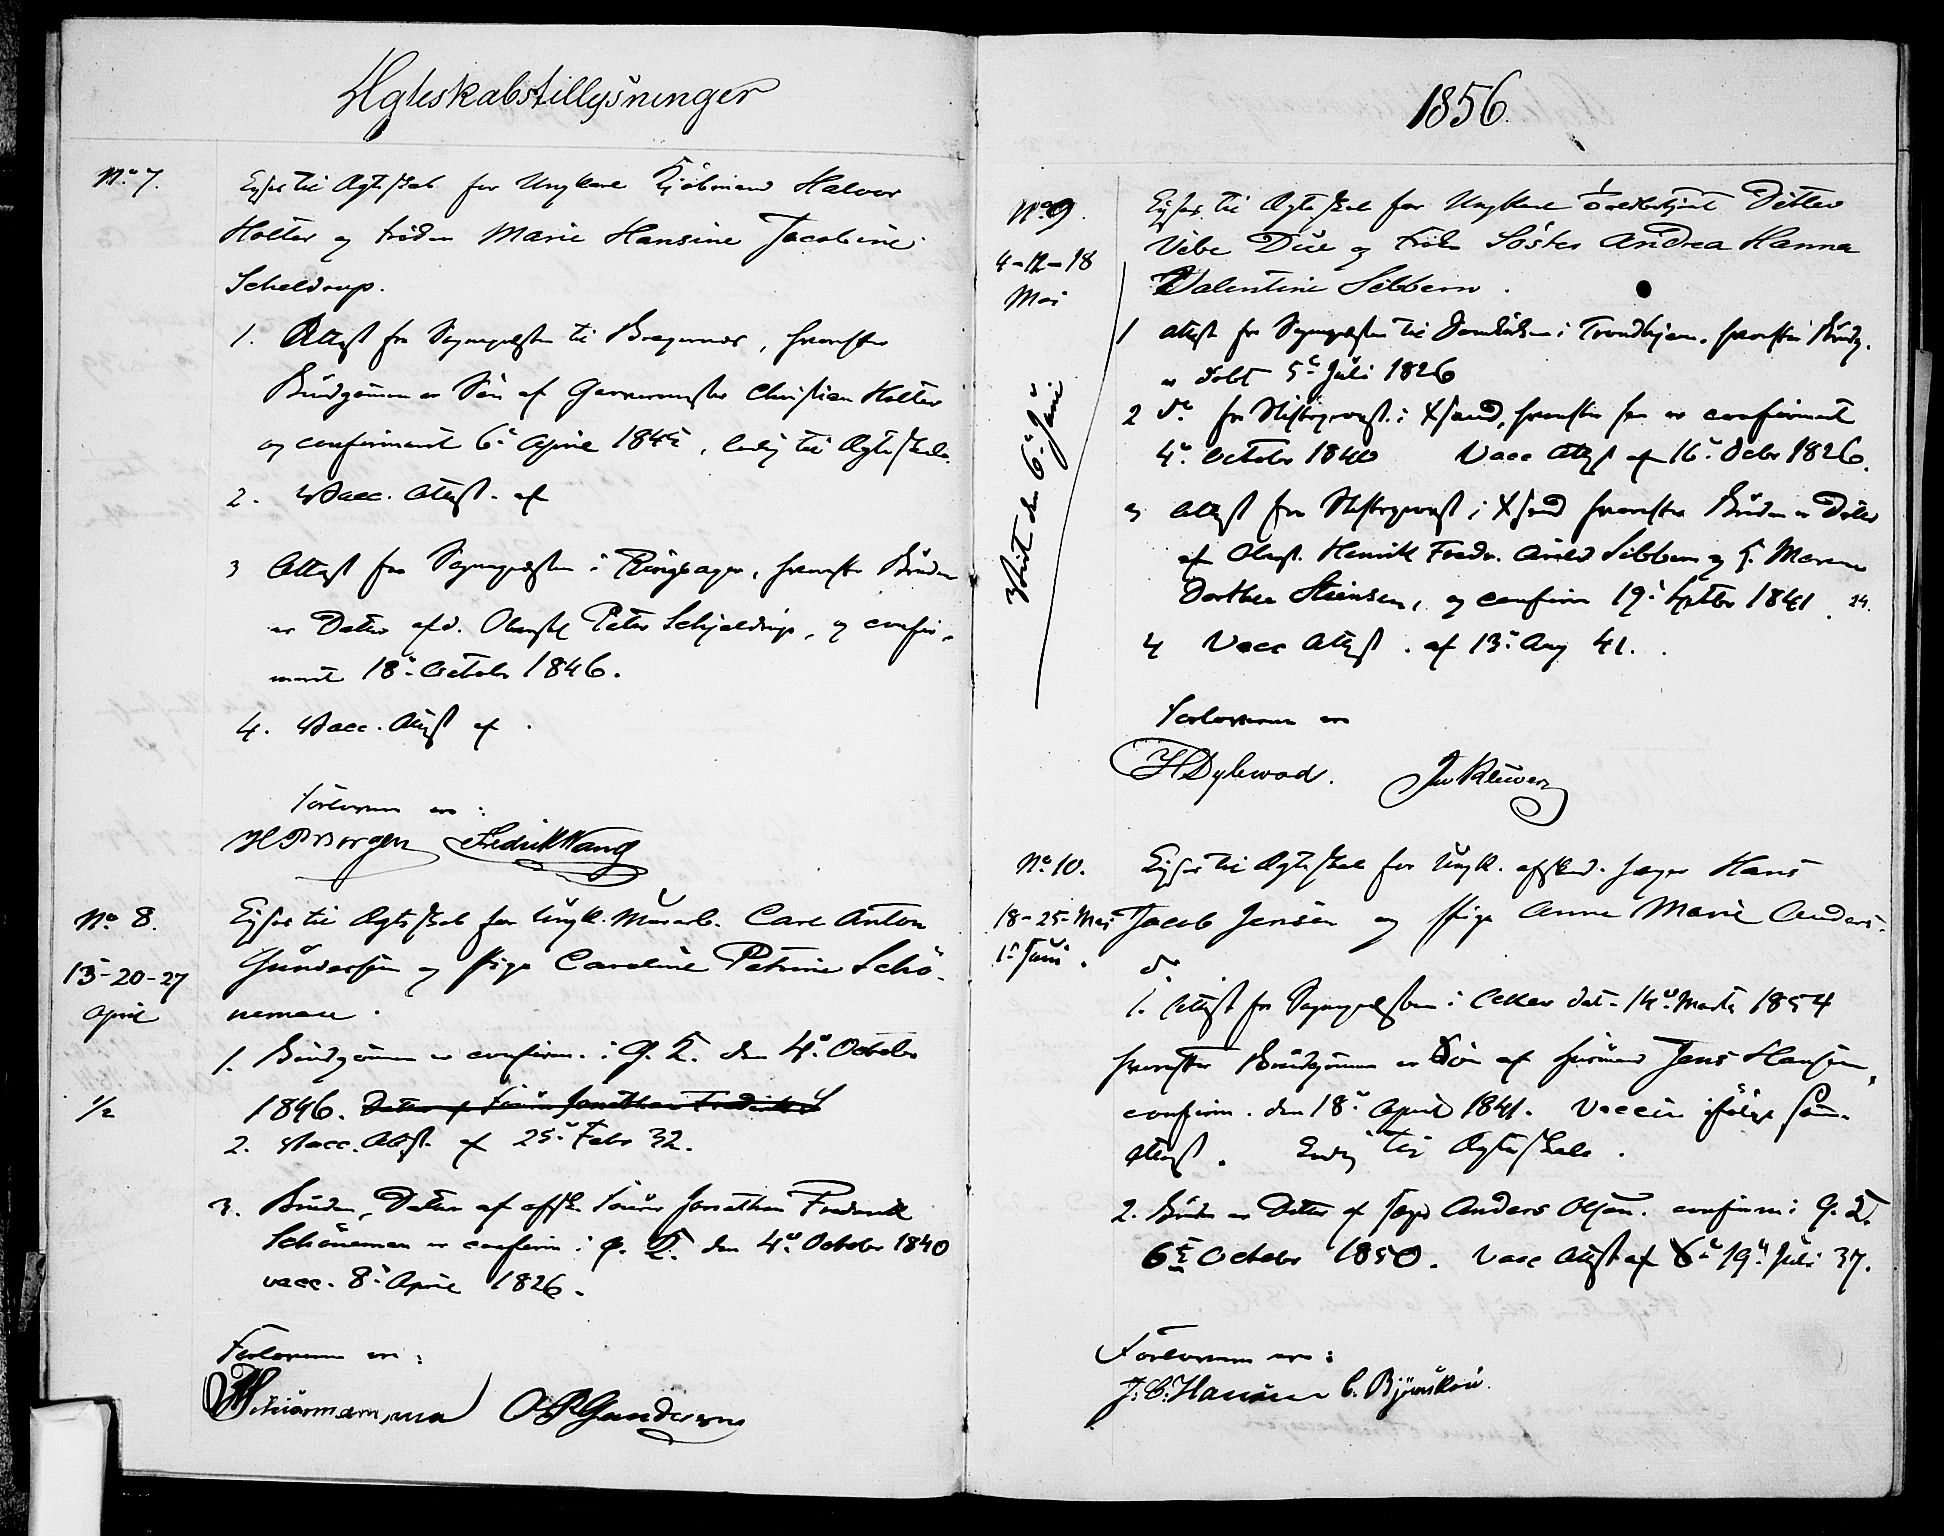 Ægteskabstillysninger
No. 7. Lyses til Ægteskab for Ungkarl Kjøbmand Halvor
Holter og Frøken Marie Hansine Jacobine
Scheldrup.
1. Attest fra Sognepresten til Bragernes, hvorefter
Brudgommen er Søn af Garvermester Christian Holter
og confirmeret 6te April 1845, ledig til Ægteskab.
2. Vacc. Attest. af
3 Attest fra Sognepresten i Ringsager, hvorefter Bruden
er Datter afd. Peter Schjeldrup, og confir-
meret 18de October 1846.
4. Vacc. Attest af .
Forlovern ere :
H P Borgen Fredrik Wang
No 8. Lyses til Ægteskab for Ungk. Murarb. Carl Anton
13-20-27 Gundersen og Pige Caroline Petrine Schö-
April nemann .
1. Brudgommen er confirm. i G. K. den 4de October
1/2 1846. Datter af Jonathan Frederik S
2. Vacc. Attest. af 25de Febr 32.
3. Bruden, Datter af afsk. Jonathan Frederik
Schöneman er confirm i G. K. den 4de October 1840
vacc. 8de April 1826.
Forlovern ere :
O P Gundersen
1856.
No 9. Lyses til Ægteskab for Ungkarl Ditlev
4-12-18 Vibe Due og Frøken Søster Andrea Hanna
Mai Valentine Sibbern .
1 Attest fra Sognepresten til Domkirken i Trondhjem, hvorefter Brudg.
er født 5te Juli 1826
2 do fra Stiftsprovst. i Xsand, hvorefter han er confirmeret
4de October 1840 Vacc Attest af 16de Octbr 1826.
Viet den 6te Juni
3 Attest fra Stiftsprovst i Xsand hvorefter Bruden er Datter
af Henrik Fredr. Arild Sibbern og H. Maren
Dorthea Steensen, og confirm 19de Septbr 1841. 24.
4 Vacc Attest . af 13de Aug 41. .
Forloverne ere
H Dybwad. Kluwer
No. 10. Lyses til Ægteskab for Ungk. afsked. Jæger Hans
18-25-Mai Jacob Jensen og Pige Anne Marie Anders-
1te Juni . d.
1. Attest fra Sognepresten i Aker dat. 14de Marts 1854
hvorefter Brudgommen er Søn af Husmand Jens Hansen,
confirm. den 18de April 1841. Vaccin ifølge sam.
Attest . Ledig til Ægteskab .
2. Bruden er Datter af Anders Olsen. confirm i G. K.
6te October 1850. Vacc Attest af 19de Juli 37.
Forlovern ere :
J. C. Hansen C. Bjørnskov.